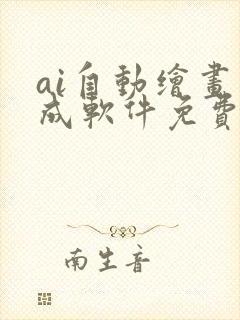 ai自動繪畫
成軟件免費
南生音